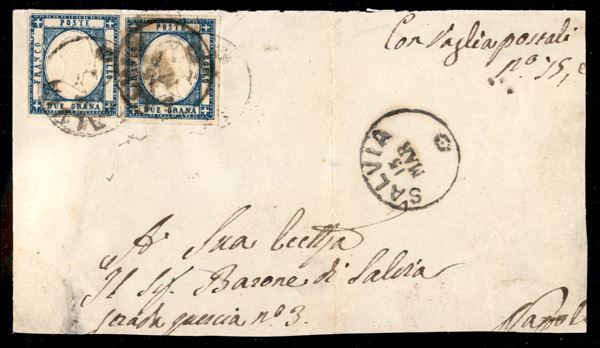 FRANCO POSTE BOLLO
DUE GRANA
FRANCO POSTE BOLLO
DUE GRANA
Con Vaglia postali
n.º 15,
SALVIA
15
MAR
A Sua Eccellza
Il Sig. Barone di Salvia
strada quercia nº 3.
Napol